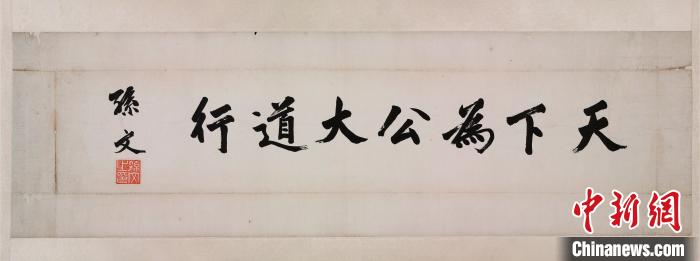 天下為公大道行
孫文
中新網
Chinanews.com